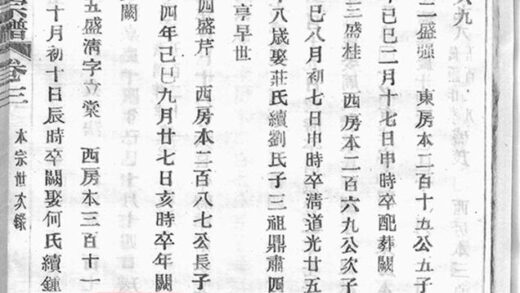 二盛强 東房本二百十五公五子
年己巳二月十七日申時卒配葬闕
三盛桂 西房本二百六九公次子
巳八月初七日申時卒清道光廿五
十八歲娶莊氏續劉氏子三祖鼎肅四
亨早世
四盛芹 西房本二百八七公長子
四年己巳九月廿七日亥時卒年闕
闕
五盛清字立棠 西房本三百十一
十月初十日辰時卒闕娶何氏續鍾
宗譜 卷三 本宗世次錄